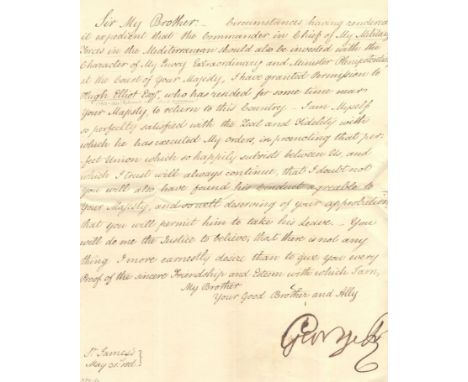 Sir My Brother — Circumstances having rendered
it expedient that the Commander in Chief of My Military
Forces in the Mediterranean should also be invested with the
Character of My Envoy Extraordinary and Minister Plenipotentiary
at the Court of Your Majesty, I have granted Permission to
Hugh Elliot Esqr, who has resided for some time near
Your Majesty to return to this Country. — I am Myself
so perfectly satisfied with the Zeal and Fidelity with
which he has executed My orders, in promoting that per-
fect Union which so happily subsists between Us, and
which I trust will always continue, that I doubt not
you will also have found his conduct agreable to
Your Majesty, and so well deserving of your approbation
that you will permit him to take his Leave. — You
will do me the Justice to believe, that there is not any
thing I more earnestly desire than to give you every
Proof of the sincere Friendship and Esteem with which I am,
My Brother
Your Good Brother and Ally
George R
St. James's
May